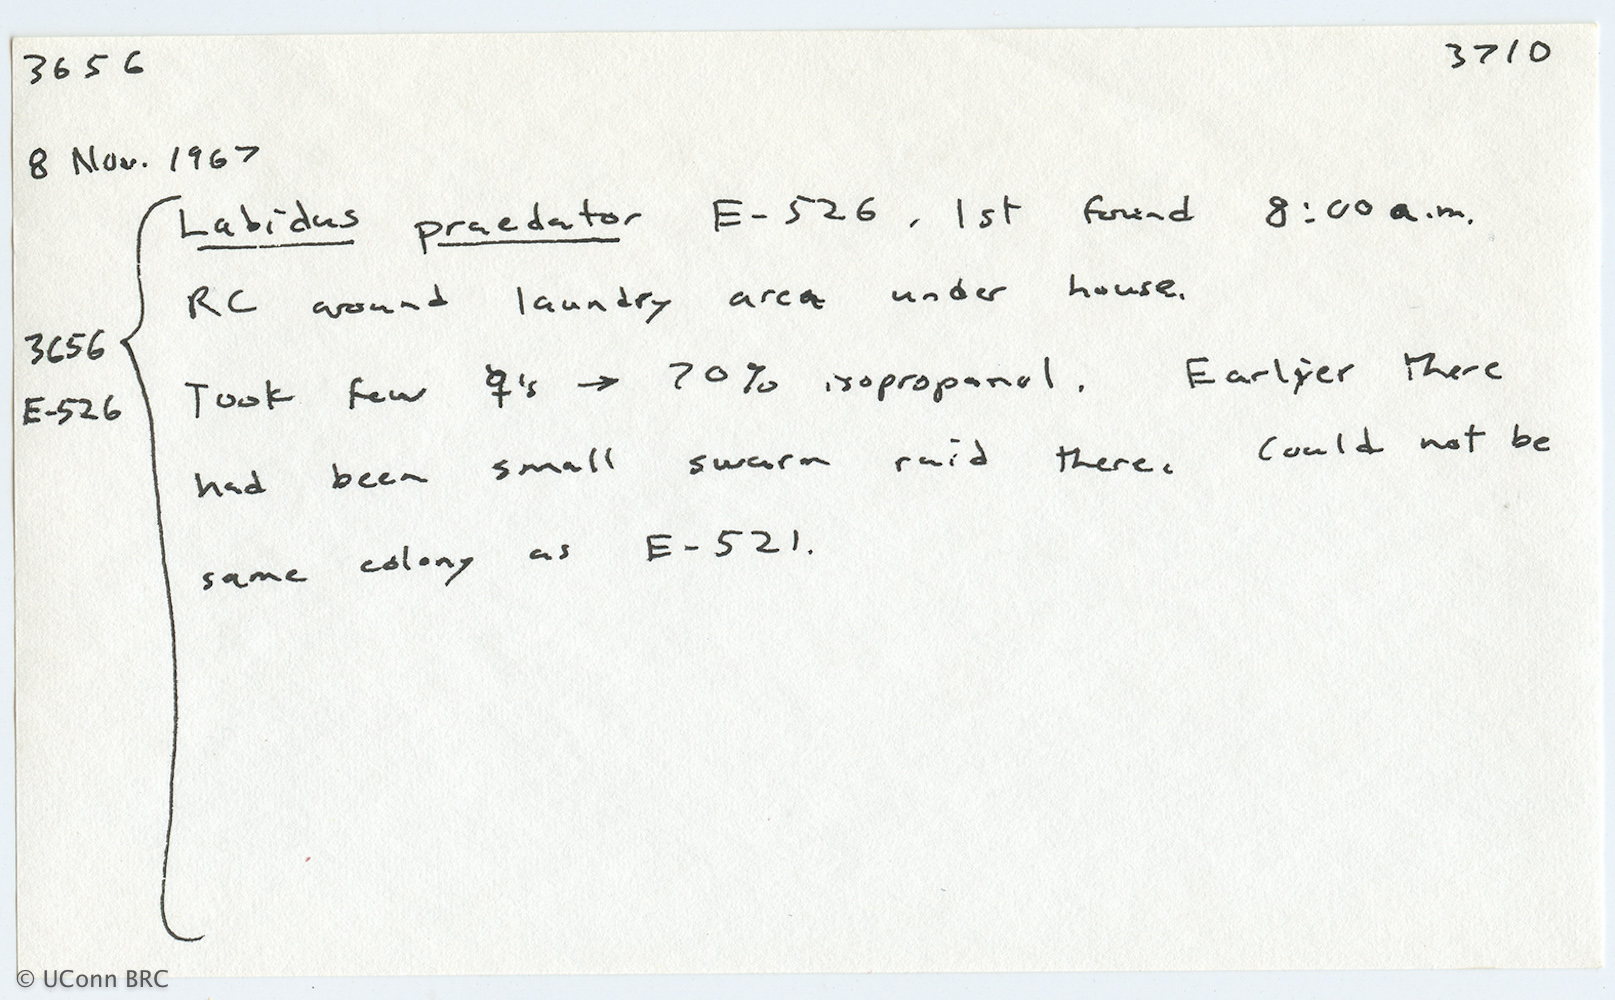 3656 3710
8 Nov. 1967
Labidus praedator E-526, 1st found 8:00 a.m.
RC around laundry area under house.
3656
E-526
Took few ☿'s → 70% isopropanol. Earlier there
had been small swarm raid there. Could not be
same colony as E-521.
© UConn BRC